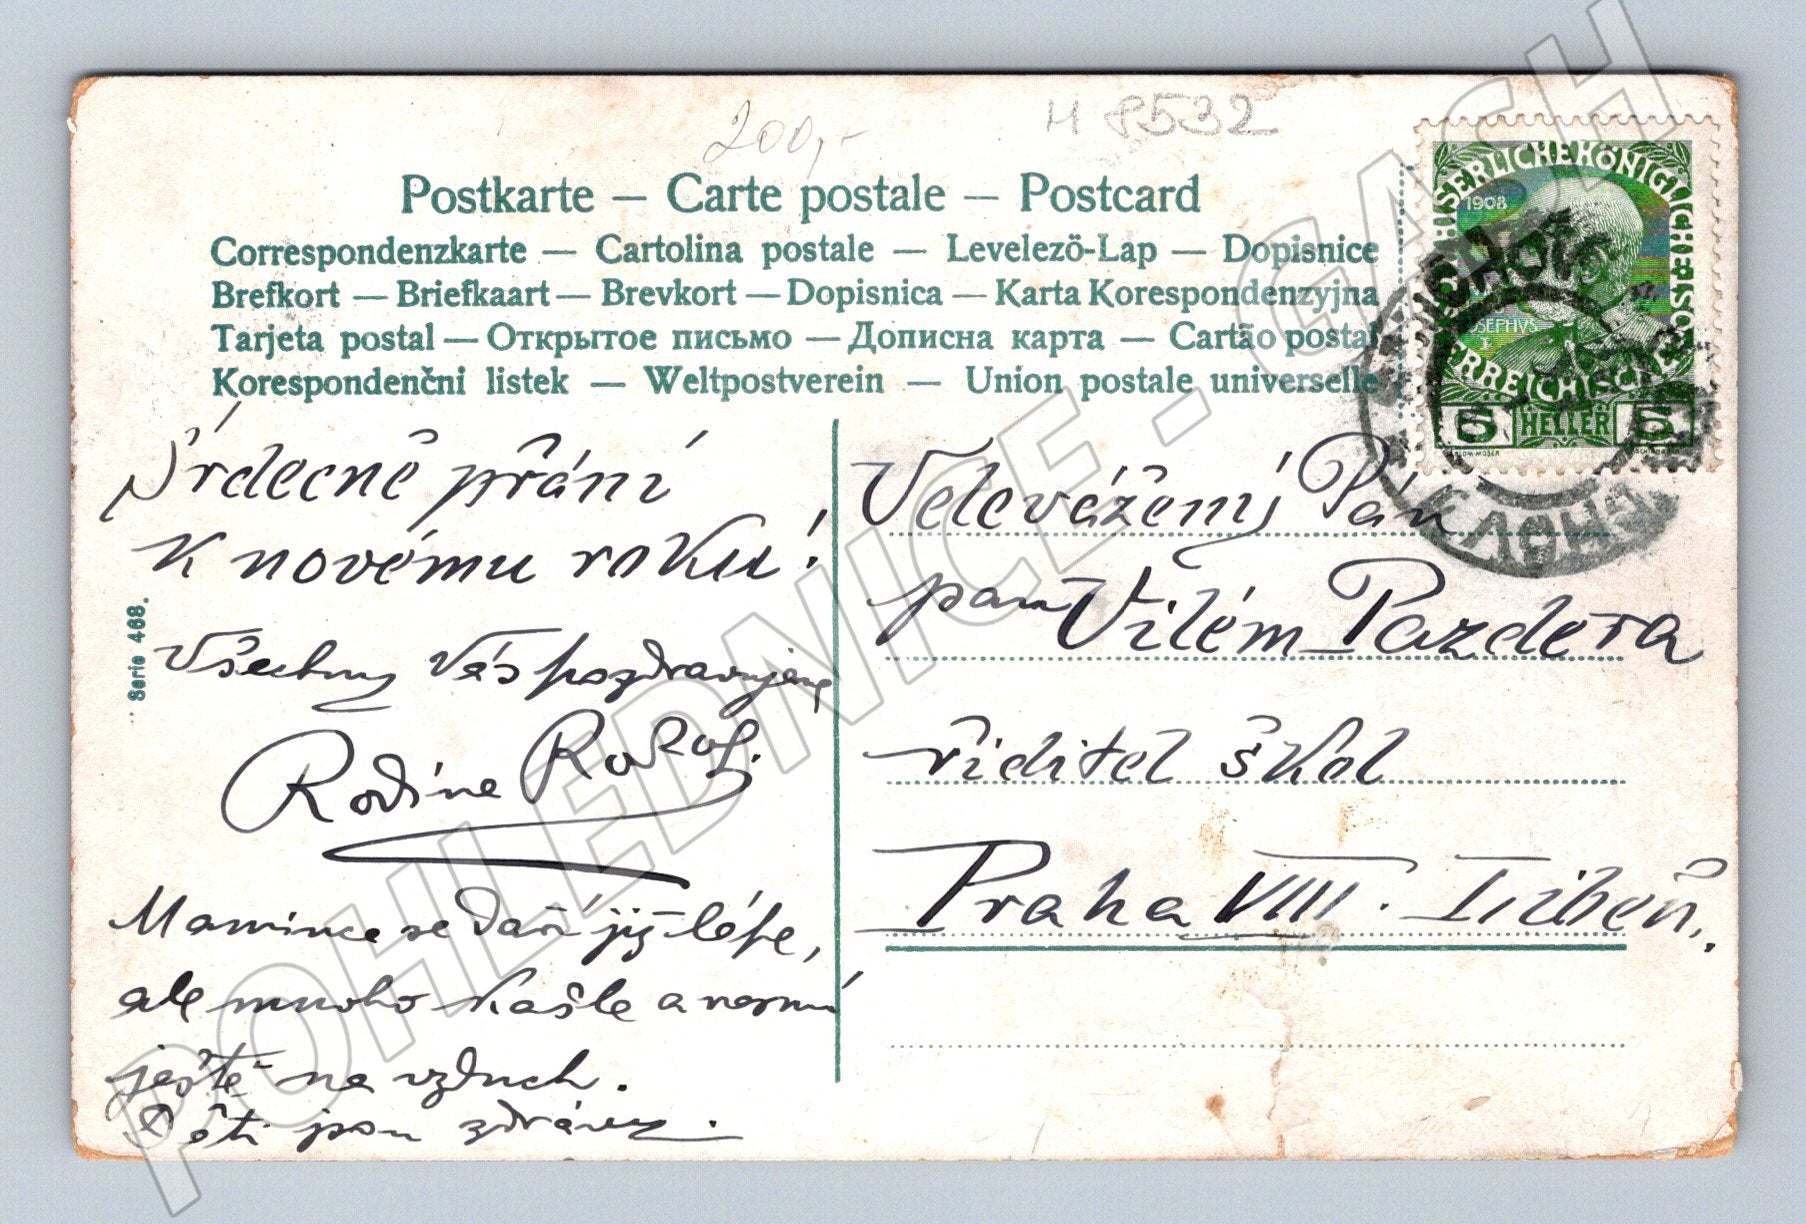 200,-
H 8532
Postkarte — Carte postale — Postcard
Correspondenzkarte — Cartolina postale — Levelezö-Lap — Dopisnice
Brefkort — Briefkaart — Brevkort — Dopisnica — Karta Korespondenzyjna
Tarjeta postal — Открытое письмо — Дописна карта — Cartão postal
Korespondenčni listek — Weltpostverein — Union postale universelle
KAISERLICHE KÖNIGLICHE
1908
JOSEPHVS
ÖSTERREICHISCHE
5 HELLER 5
Srdecné přání
K novému roku!
Všechny Vás pozdravujeme
Rodina
Mamince se daří již lépe,
ale mnoho kašle a nesmí
ještě na vzduch.
Děti jsou zdrávy.
Serie 468.
Velevážený Pán
pan Vilém Pazdera
řiditel škol
Praha VIII. Libeň.
POHLEDNICE - GASH